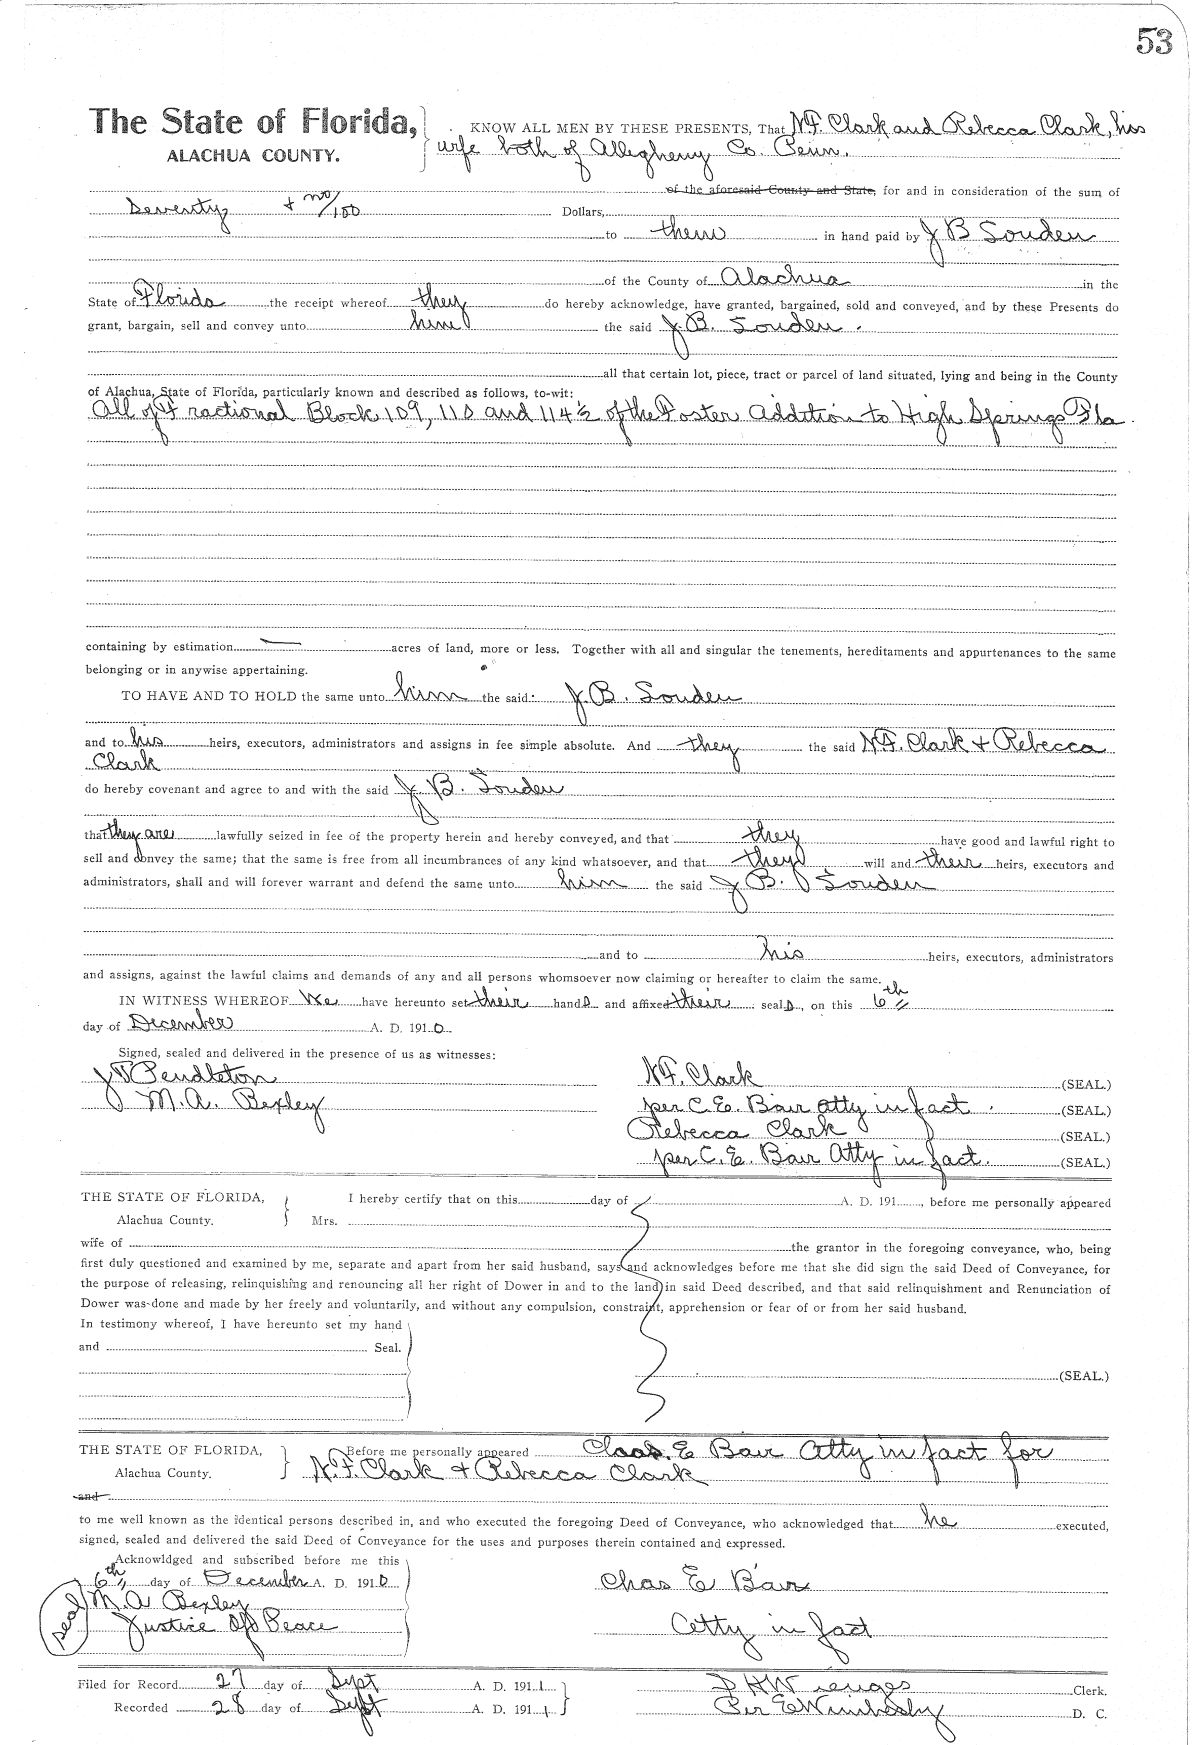 53
The State of Florida, KNOW ALL MEN BY THESE PRESENTS, That N.F. Clark and Rebecca Clark, his
ALACHUA COUNTY. wife both of Allegheny Co. Penn.
of the aforesaid County and State, for and in consideration of the sum of
Seventy + no/100 Dollars,
to them in hand paid by J B Souden
of the County of Alachua in the
State of Florida the receipt whereof they do hereby acknowledge, have granted, bargained, sold and conveyed, and by these Presents do
grant, bargain, sell and convey unto him the said J. B. Souden.
all that certain lot, piece, tract or parcel of land situated, lying and being in the County
of Alachua, State of Florida, particularly known and described as follows, to-wit:
All of Fractional Block 109, 110 and 114½ of the Foster Addition to High Springs Fla.
containing by estimation — acres of land, more or less. Together with all and singular the tenements, hereditaments and appurtenances to the same
belonging or in anywise appertaining.
TO HAVE AND TO HOLD the same unto him the said: J. B. Souden
and to his heirs, executors, administrators and assigns in fee simple absolute. And they the said N.F. Clark + Rebecca
Clark
do hereby covenant and agree to and with the said J. B. Souden
that they are lawfully seized in fee of the property herein and hereby conveyed, and that they have good and lawful right to
sell and convey the same; that the same is free from all incumbrances of any kind whatsoever, and that they will and their heirs, executors and
administrators, shall and will forever warrant and defend the same unto him the said J B. Souden
and to his heirs, executors, administrators
and assigns, against the lawful claims and demands of any and all persons whomsoever now claiming or hereafter to claim the same.
IN WITNESS WHEREOF We have hereunto set their hands and affixed their seals, on this 6th
day of December A. D. 1910.
Signed, sealed and delivered in the presence of us as witnesses:
J T Pendleton N.F. Clark (SEAL.)
M.A. Bexley per C.E. Bair Atty in fact. (SEAL.)
Rebecca Clark (SEAL.)
per C.E. Bair Atty in fact. (SEAL.)
THE STATE OF FLORIDA, I hereby certify that on this day of A. D. 191 , before me personally appeared
Alachua County. Mrs.
wife of the grantor in the foregoing conveyance, who, being
first duly questioned and examined by me, separate and apart from her said husband, says and acknowledges before me that she did sign the said Deed of Conveyance, for
the purpose of releasing, relinquishing and renouncing all her right of Dower in and to the land in said Deed described, and that said relinquishment and Renunciation of
Dower was done and made by her freely and voluntarily, and without any compulsion, constraint, apprehension or fear of or from her said husband.
In testimony whereof, I have hereunto set my hand
and Seal.
(SEAL.)
THE STATE OF FLORIDA, Before me personally appeared Chas. E Bair Atty in fact for
Alachua County. N.F. Clark + Rebecca Clark
and
to me well known as the identical persons described in, and who executed the foregoing Deed of Conveyance, who acknowledged that he executed,
signed, sealed and delivered the said Deed of Conveyance for the uses and purposes therein contained and expressed.
Acknowldged and subscribed before me this
6th day of December A. D. 1910 Chas E Bair
M. A Bexley
Seal Justice Of Peace Atty in fact
Filed for Record 27 day of Sept A. D. 1911 Clerk.
Recorded 28 day of Sept A. D. 1911 Per E Wimberly D. C.